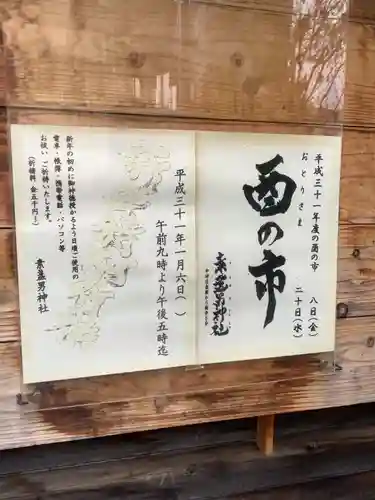 平成三十一年度の酉の市
おとりさま
八日(金)
二十日(水)
酉の市
素盞男神社
平成三十一年一月六日( )
午前九時より午後五時迄
新年の初めに御神徳授かるよう日頃ご使用の
電車・帳簿・携帯電話・パソコン等
お祓いご祈祷いたします。
(祈祷料 金五千円~)
素盞男神社